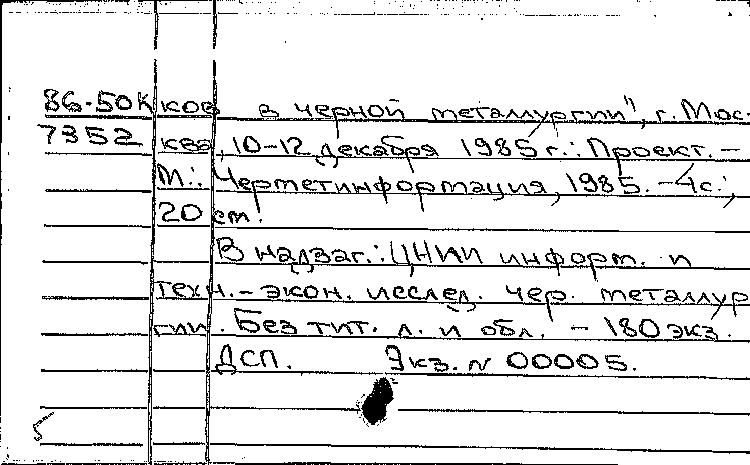 86-50к ков в черной металлургии", г. Мос-
7352 ква, 10-12 декабря 1985 г.: Проект. -
М.: Черметинформация, 1985. - 4 с.;
20 см.
В надзаг.: ЦНИИ информ. и
техн.-экон. исслед. чер. металлур
гии. Без тит. л. и обл. - 180 экз.
ДСП. Экз. N 00005.